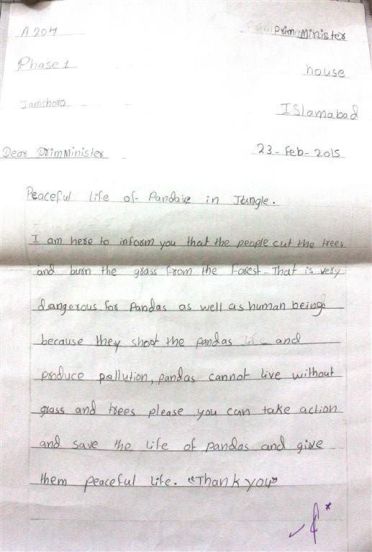 A 204
Prim Minister
Phase 1
house
Jamshoro
ISlamabad
Dear PrimMinister
23-Feb-2015
Peaceful life of Pandaiz in Jungle.
I am here to inform you that the people cut the trees
and burn the grass from the Forest. That is very
dangerous for Pandas as well as human beings
because they shoot the pandas and
produce pollution, pandas cannot live without
grass and trees please you can take action
and save the life of pandas and give
them peaceful life. "Thank you"